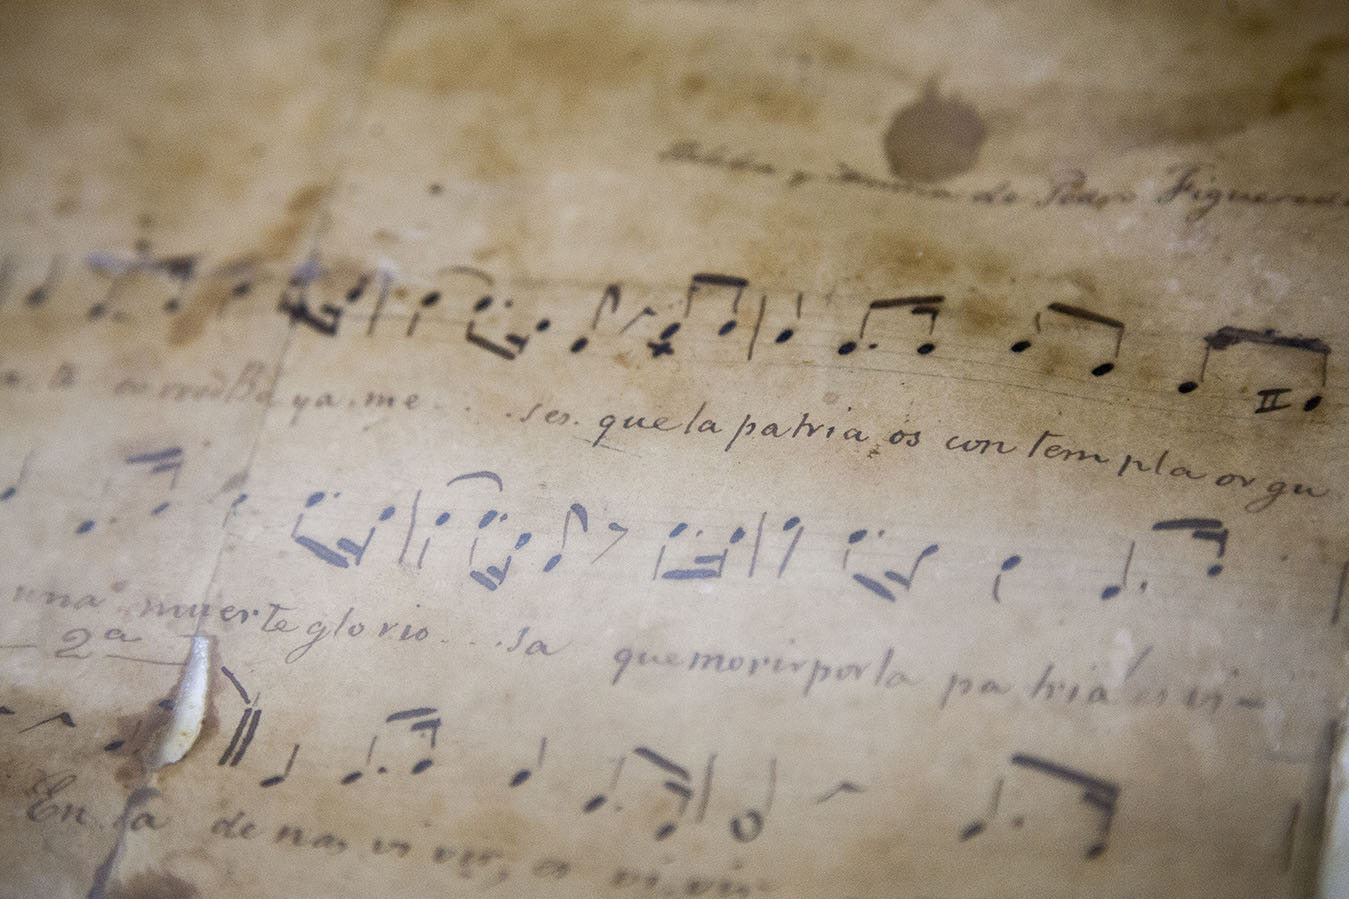 y Musica de Pedro Figueredo
ya. me . . . ses. que la patria os con tem pla or gu
una muerte glorio . . . sa que morir por la pa tria es vi-
2ª
En ca de nas vi vir, es vi, vir